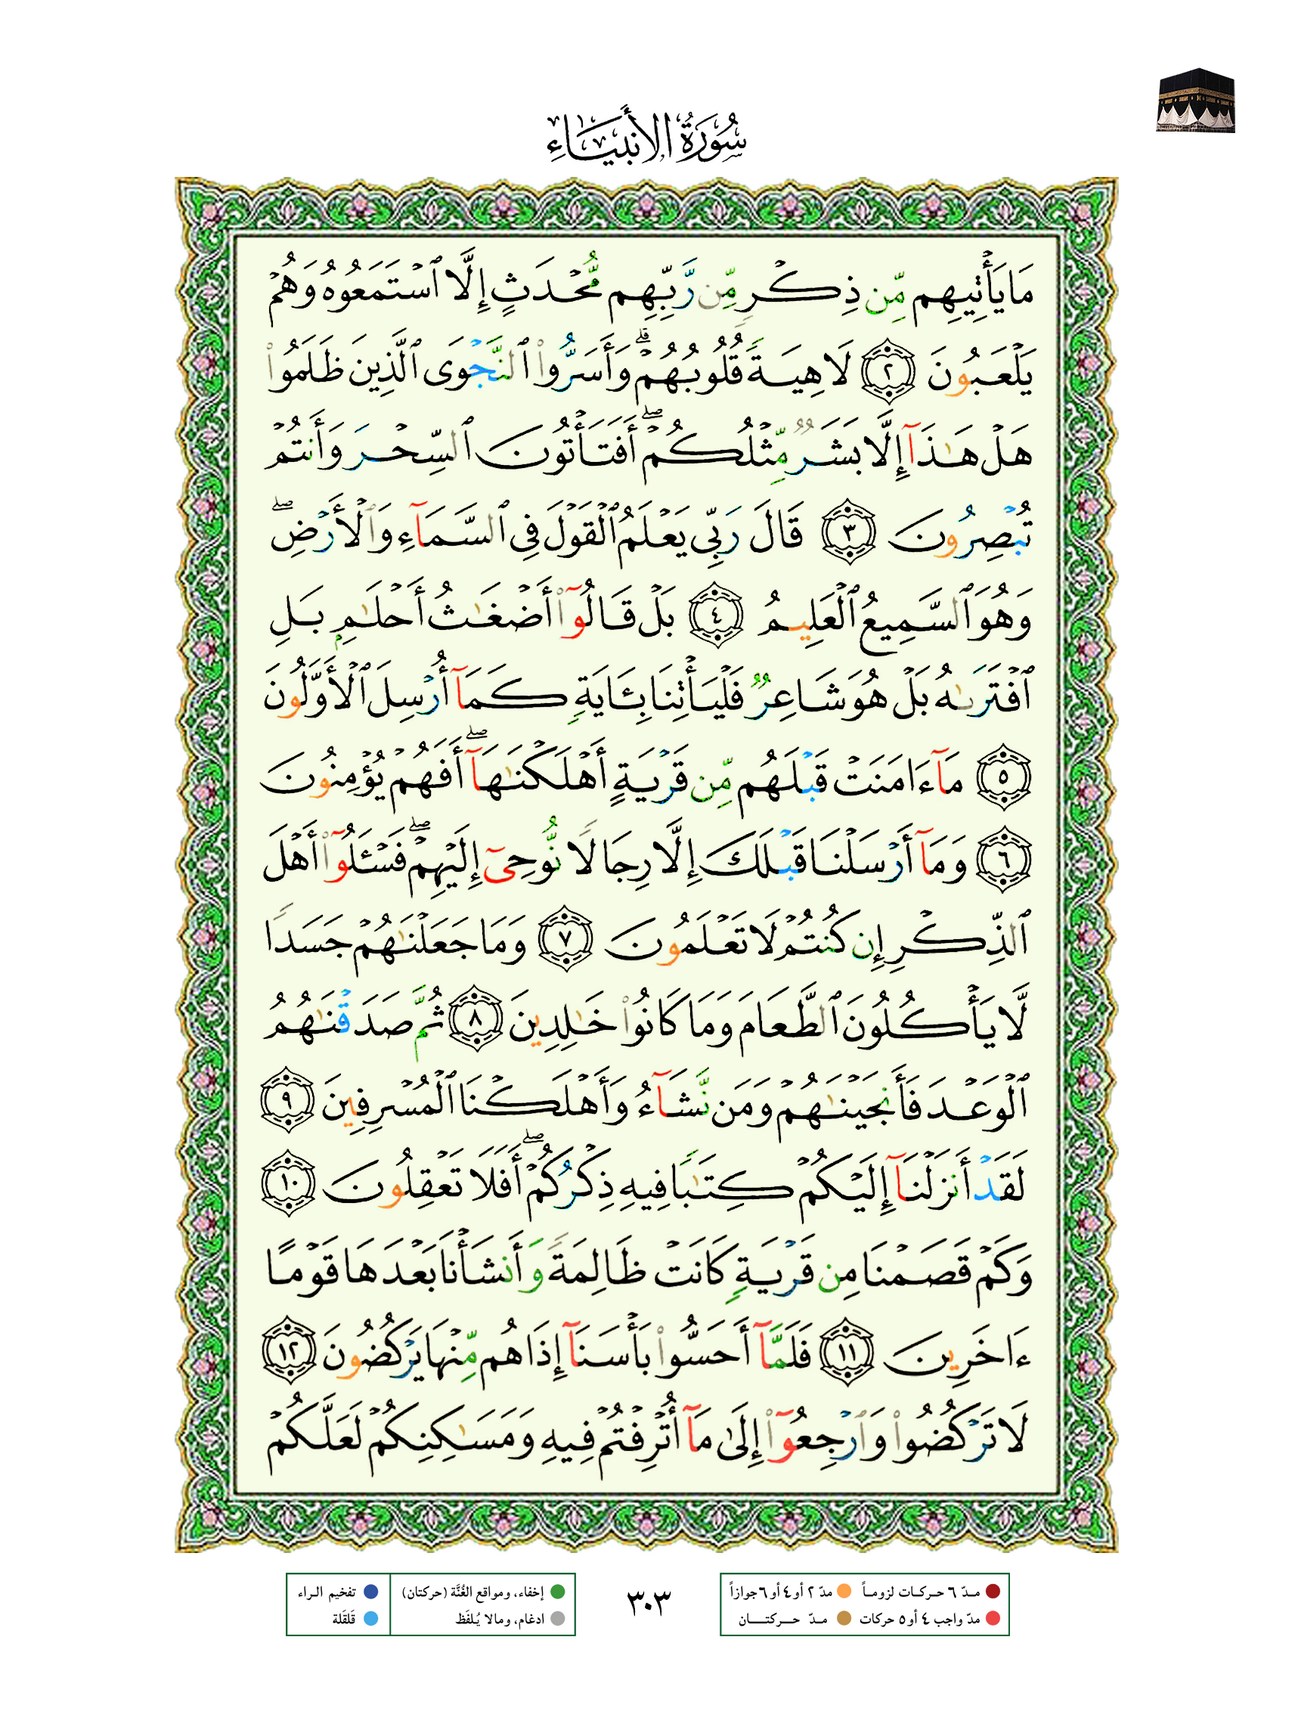 سُورَةُ الأَنبِيَاءِ
مَا يَأْتِيهِم مِّن ذِكْرٍ مِّن رَّبِّهِم مُّحْدَثٍ إِلَّا ٱسْتَمَعُوهُ وَهُمْ
يَلْعَبُونَ ٢ لَاهِيَةً قُلُوبُهُمْ ۗ وَأَسَرُّوا۟ ٱلنَّجْوَى ٱلَّذِينَ ظَلَمُوا۟
هَلْ هَـٰذَآ إِلَّا بَشَرٌ مِّثْلُكُمْ ۖ أَفَتَأْتُونَ ٱلسِّحْرَ وَأَنتُمْ
تُبْصِرُونَ ٣ قَالَ رَبِّى يَعْلَمُ ٱلْقَوْلَ فِى ٱلسَّمَآءِ وَٱلْأَرْضِ ۖ
وَهُوَ ٱلسَّمِيعُ ٱلْعَلِيمُ ٤ بَلْ قَالُوٓا۟ أَضْغَـٰثُ أَحْلَـٰمٍۭ بَلِ
ٱفْتَرَىٰهُ بَلْ هُوَ شَاعِرٌ فَلْيَأْتِنَا بِـَٔايَةٍ كَمَآ أُرْسِلَ ٱلْأَوَّلُونَ
٥ مَآ ءَامَنَتْ قَبْلَهُم مِّن قَرْيَةٍ أَهْلَكْنَـٰهَآ ۖ أَفَهُمْ يُؤْمِنُونَ
٦ وَمَآ أَرْسَلْنَا قَبْلَكَ إِلَّا رِجَالًا نُّوحِىٓ إِلَيْهِمْ ۖ فَسْـَٔلُوٓا۟ أَهْلَ
ٱلذِّكْرِ إِن كُنتُمْ لَا تَعْلَمُونَ ٧ وَمَا جَعَلْنَـٰهُمْ جَسَدًا
لَّا يَأْكُلُونَ ٱلطَّعَامَ وَمَا كَانُوا۟ خَـٰلِدِينَ ٨ ثُمَّ صَدَقْنَـٰهُمُ
ٱلْوَعْدَ فَأَنجَيْنَـٰهُمْ وَمَن نَّشَآءُ وَأَهْلَكْنَا ٱلْمُسْرِفِينَ ٩
لَقَدْ أَنزَلْنَآ إِلَيْكُمْ كِتَـٰبًا فِيهِ ذِكْرُكُمْ ۖ أَفَلَا تَعْقِلُونَ ١٠
وَكَمْ قَصَمْنَا مِن قَرْيَةٍ كَانَتْ ظَالِمَةً وَأَنشَأْنَا بَعْدَهَا قَوْمًا
ءَاخَرِينَ ١١ فَلَمَّآ أَحَسُّوا۟ بَأْسَنَآ إِذَا هُم مِّنْهَا يَرْكُضُونَ ١٢
لَا تَرْكُضُوا۟ وَٱرْجِعُوٓا۟ إِلَىٰ مَآ أُتْرِفْتُمْ فِيهِ وَمَسَـٰكِنِكُمْ لَعَلَّكُمْ
مـدّ ٦ حـركـات لزومـاً مدّ ٢ أو ٤ أو ٦ جوازاً
مدّ واجب ٤ أو ٥ حركات مـدّ حـــركتـــــان
٣٠٣
إخفاء، ومواقع الغُنَّة (حركتان) تفخيم الراء
ادغام، ومالا يُـلفَظ قلقَلة